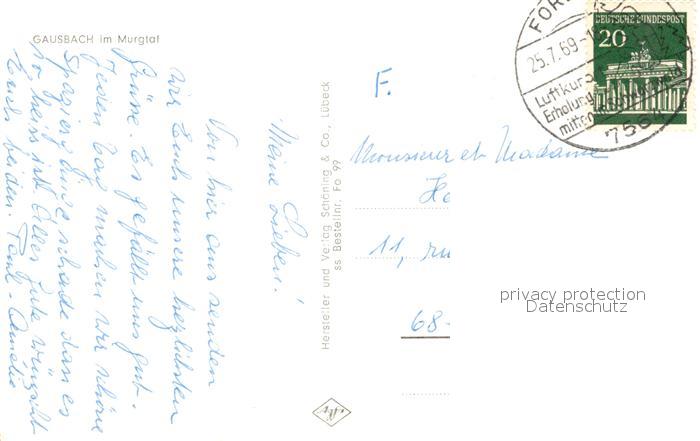 GAUSBACH im Murgtal
Meine Lieben!
Von hier aus senden
wir Euch unsere herzlichsten
Grüsse. Es gefällt uns gut.
Jeden Tag machen wir schöne
Spaziergänge, schade dass es
so heiss ist. Alles Gute wünscht
Euch beiden. Faml. Amélie
Hersteller und Verlag Schöning & Co., Lübeck
ss Bestellnr. Fo 99
F.
Monsieur et Madame
11, ru
68-
FOR
25.7.69-1
Luftkur
Erholung
mitten
7564
DEUTSCHE BUNDESPOST
20
privacy protection
Datenschutz